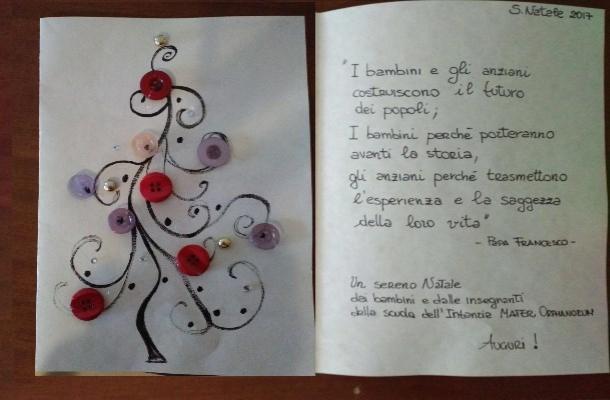 S. Natale 2017
"I bambini e gli anziani
costruiscono il futuro
dei popoli;
I bambini perché porteranno
avanti la storia,
gli anziani perché trasmettono
l'esperienza e la saggezza
della loro vita"
- Papa Francesco -
Un sereno Natale
dai bambini e dalle insegnanti
della scuola dell'Infanzia MATER ORPHANORUM
Auguri !